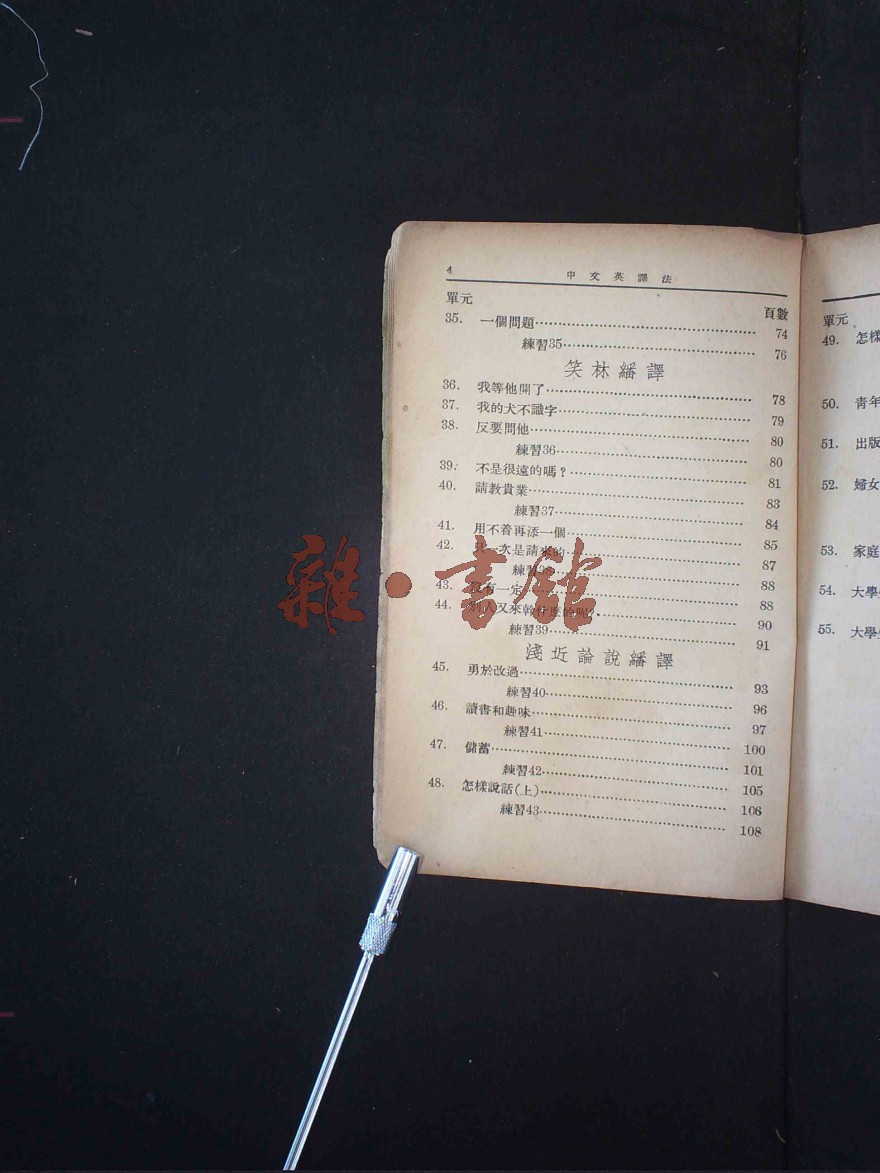 4 中文英譯法
單元 頁數
35. 一個問題 74
練習35 76
笑林繙譯
36. 我等他開了 78
37. 我的犬不識字 79
38. 反要問他 80
練習36 80
39. 不是很遠的嗎? 81
40. 請教貴業 83
練習37 84
41. 用不着再添一個 85
42. 只一次是請來的 87
練習38 88
43. 沒有一定 88
44. 別人又來幹什麽的呢? 90
練習39 91
淺近論說繙譯
45. 勇於改過 93
練習40 96
46. 讀書和趣味 97
練習41 100
47. 儲蓄 101
練習42 105
48. 怎樣說話(上) 106
練習43 108
單元
49. 怎樣
50. 青年
51. 出版
52. 婦女
53. 家庭
54. 大學
55. 大學
雜·書館